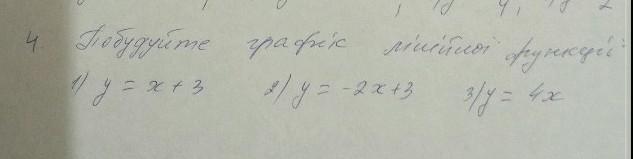 4 Побудуйте графік лінійної функції:
1) y = x + 3 2) y = -2x+3 3) y = 4x